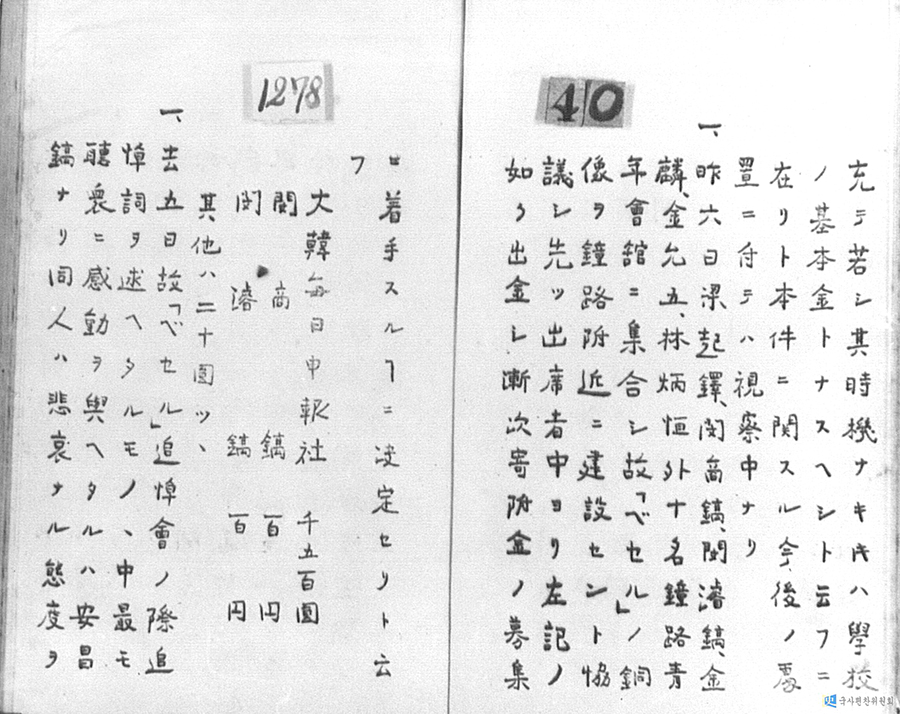 40
充テ若シ其時機ナキキハ學校
ノ基本金トナスヘシト云フニ
在リト本件ニ関スル今後ノ處
置ニ付テハ視察中ナリ
一、昨六日梁起鐸、閔商鎬、閔濬鎬、金
麟、金允五、林炳恒外十名鐘路青
年會舘ニ集合シ故「ベセル」ノ銅
像ヲ鐘路附近ニ建設セント恊
議シ先ッ出席者中ヨリ左記ノ
如ク出金シ漸次寄附金ノ募集
1278
ニ着手スルヿニ决定セリト云
フ
大韓毎日申報社 千五百圓
閔商鎬 百円
閔濬鎬 百円
其他ハ二十圓ッヽ
一、去五日故「ベセル」追悼會ノ際追
悼詞ヲ述ヘタルモノヽ中最モ
聴衆ニ感動ヲ與ヘタルハ安昌
鎬ナリ同人ハ悲哀ナル態度ヲ
국사편찬위원회